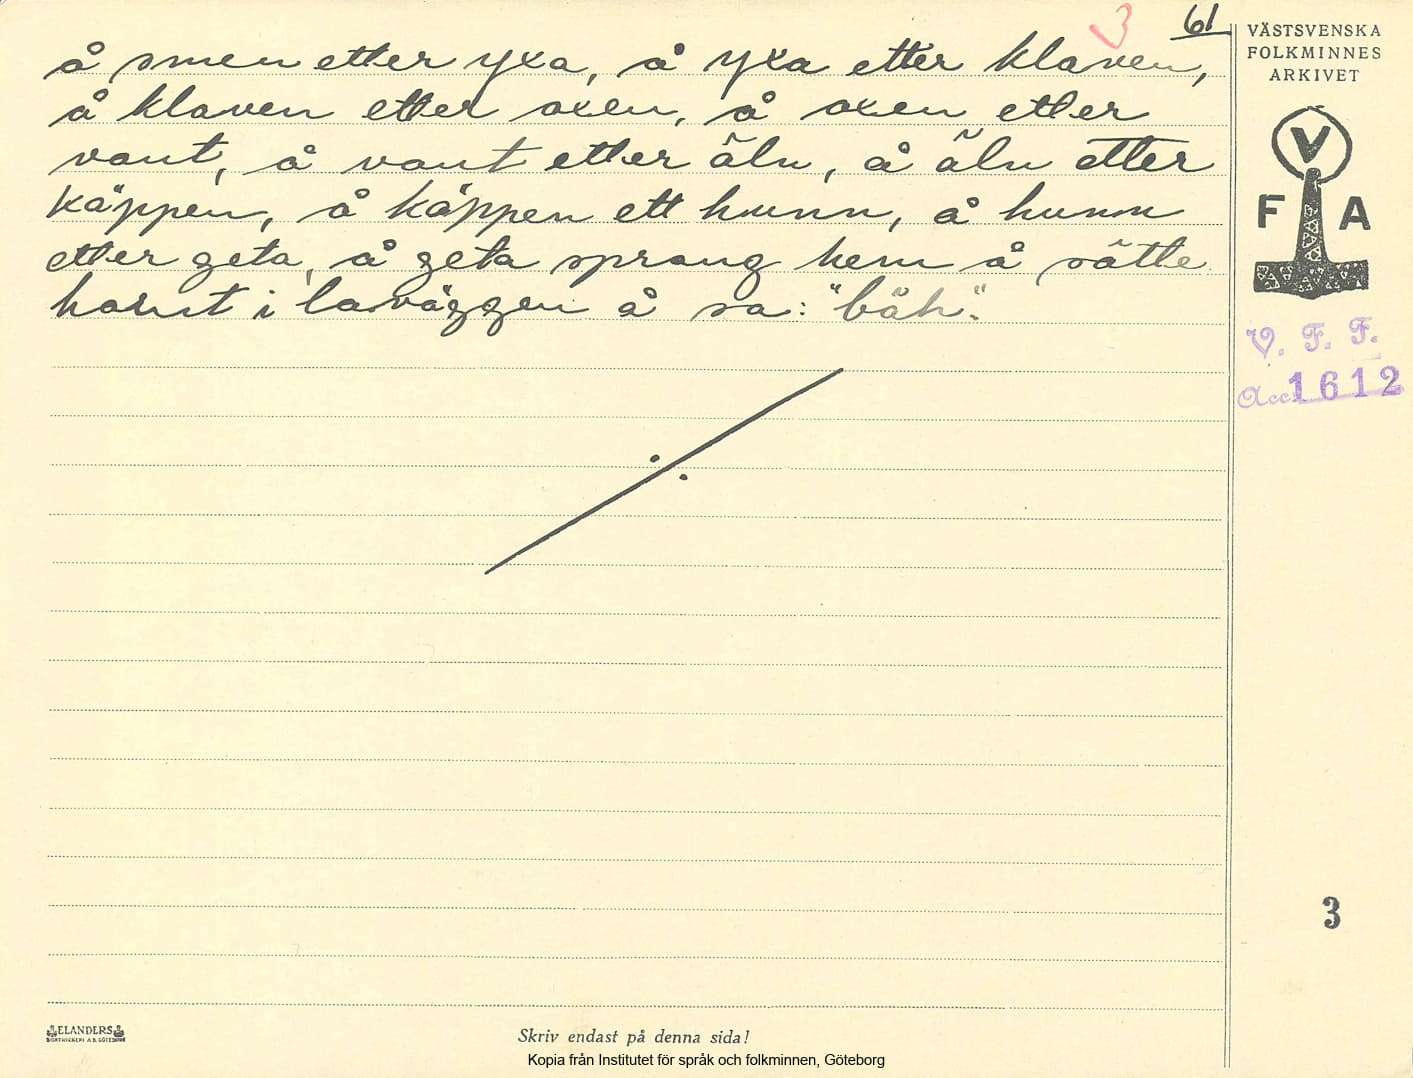 3 61
å smen etter yxa, å yxa etter klaven,
å klaven etter oxen, å oxen etter
vant, å vant etter äln, å äln etter
käppen, å käppen ett hunn, å hunn
etter geta, å geta sprang hem å sätte
hornt i laväggen å sa: "bäh."
VÄSTSVENSKA
FOLKMINNES
ARKIVET
V
F A
V. F. F.
Acc. 1612
3
ELANDERS
Skriv endast på denna sida!
Kopia från Institutet för språk och folkminnen, Göteborg